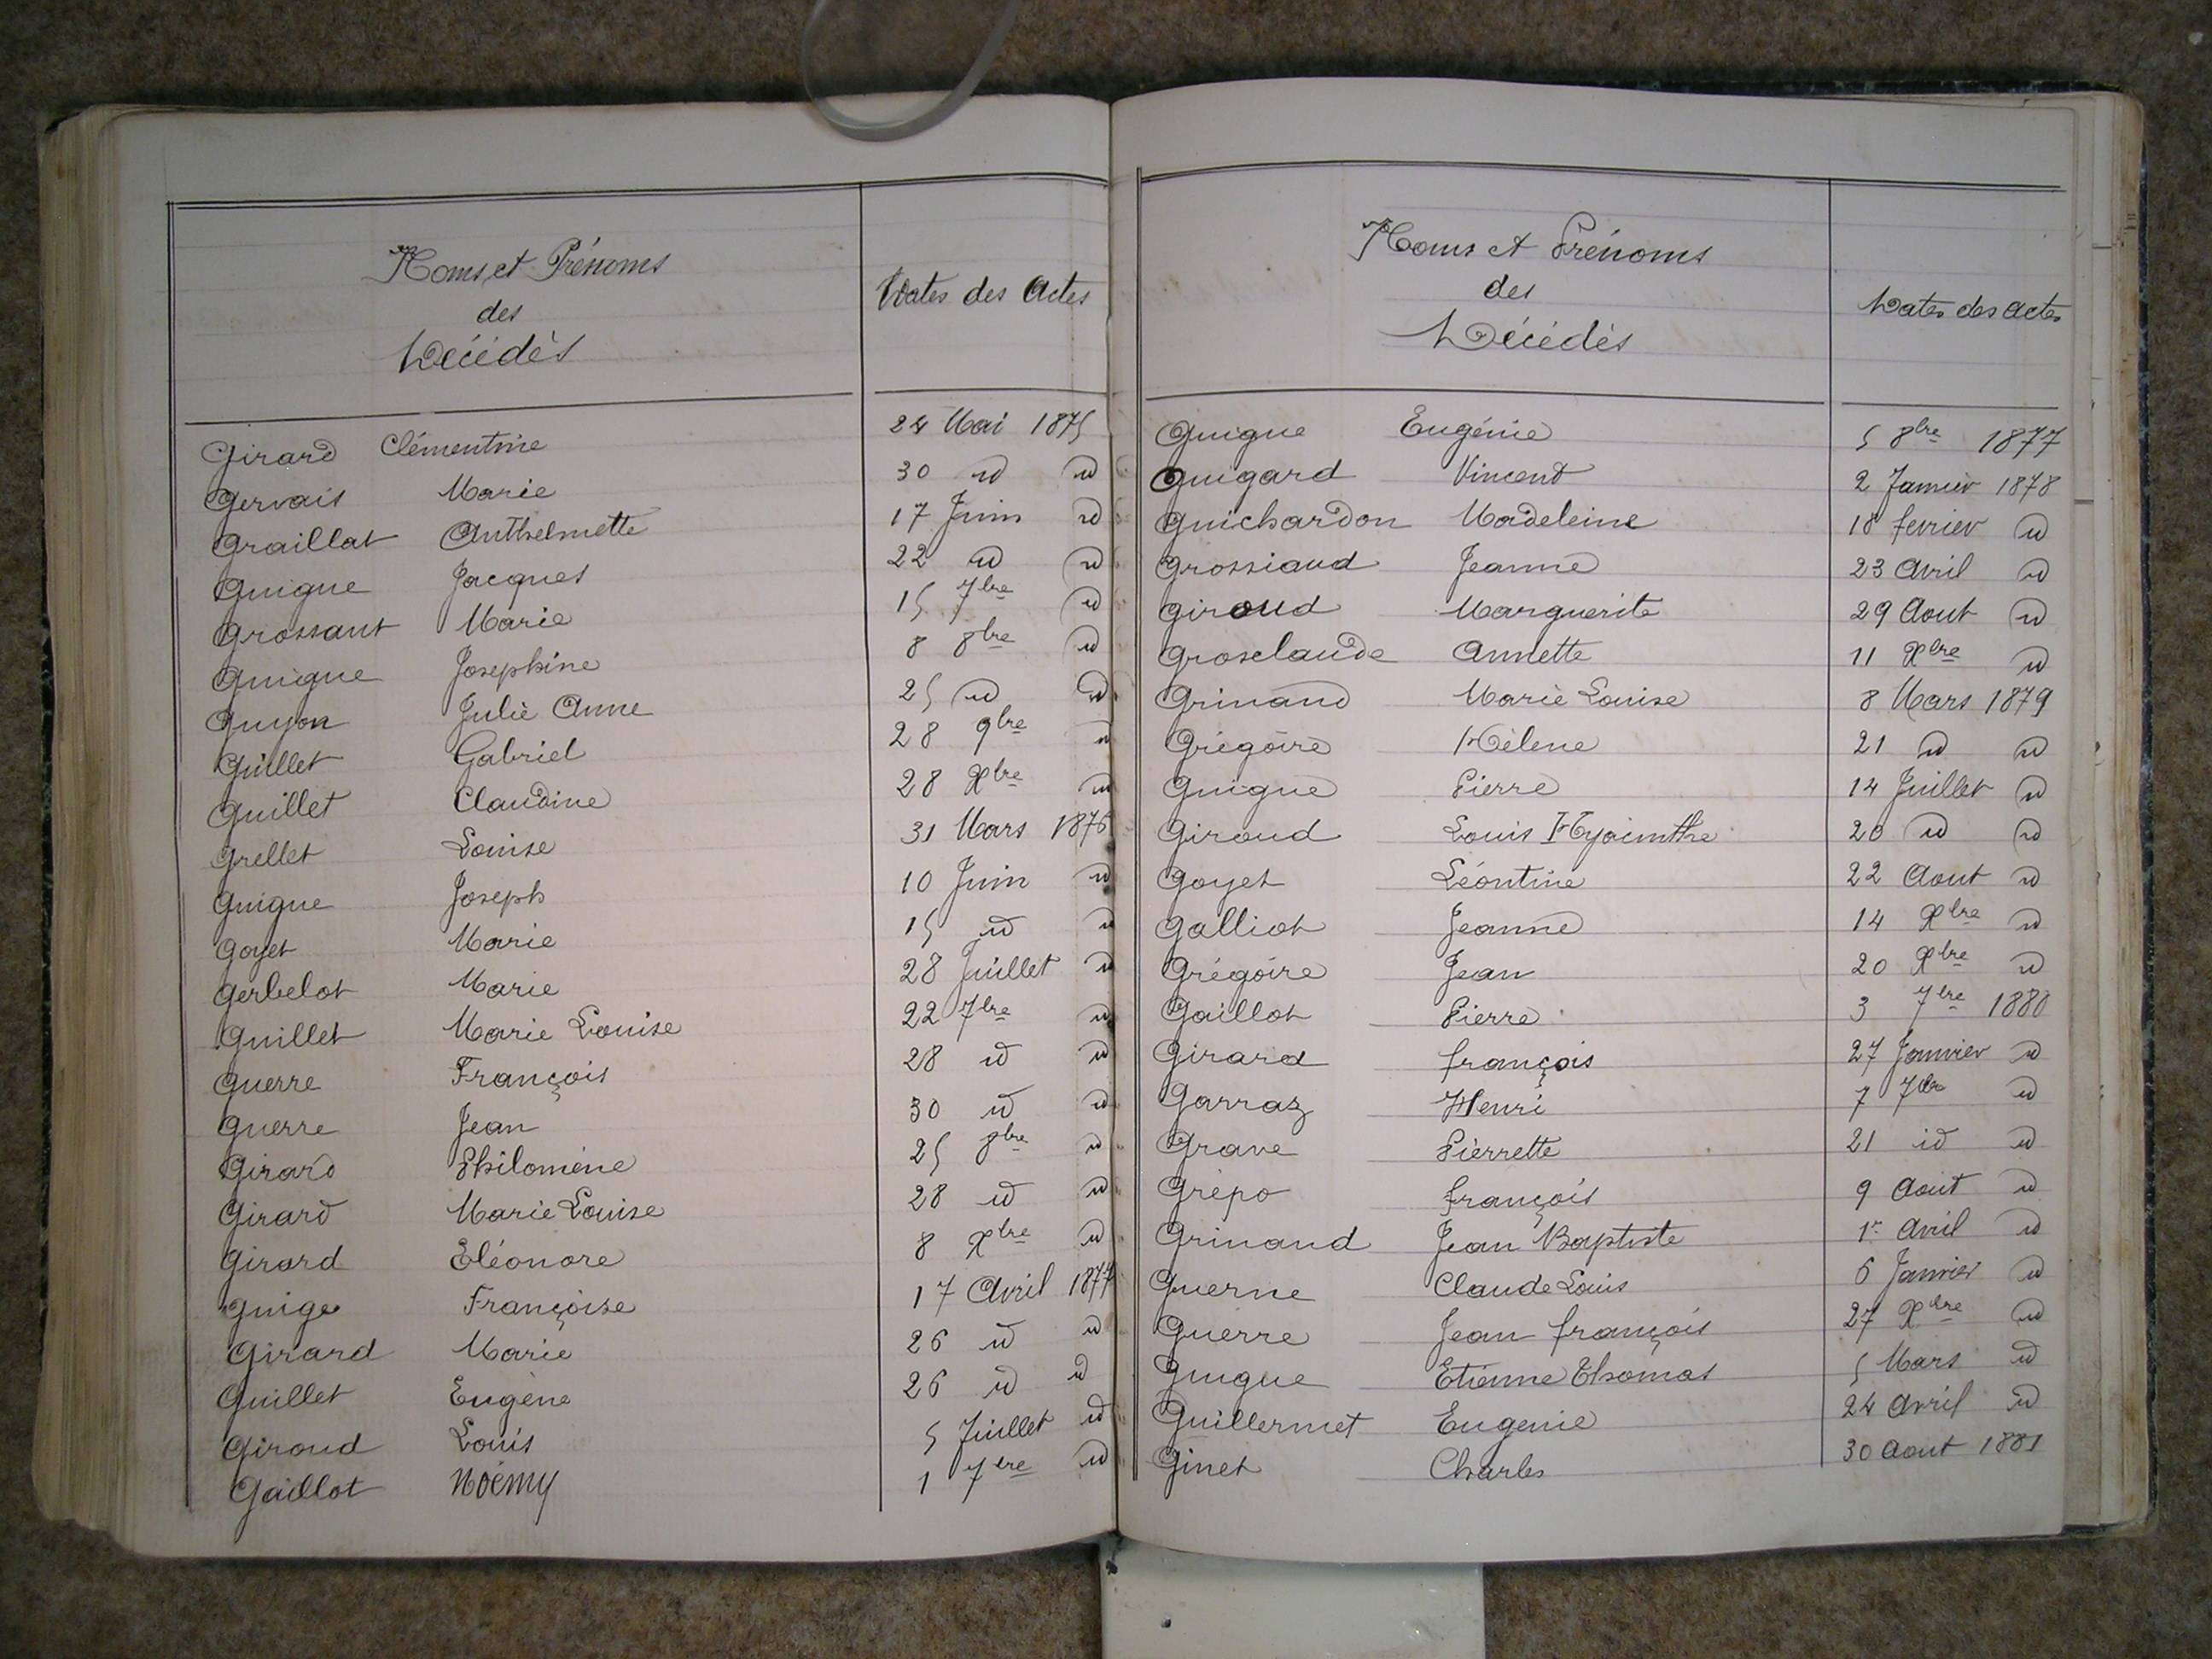 Noms et Prénoms
des
Décédés
Dates des Actes
Girard Clémentine 24 Mai 1875
Gervais Marie 30 id id
Graillat Anthelmette 17 Juin id
Guigue Jacques 22 id id
Grossant Marie 15 7bre id
Guigue Josephine 8 8bre id
Guyon Julie Anne 25 id id
Guillet Gabriel 28 9bre id
Guillet Claudine 28 Xbre id
Grellet Louise 31 Mars 1876
Guigue Joseph 10 Juin id
Goyet Marie 15 id id
Gerbelot Marie 28 Juillet id
Guillet Marie Louise 22 7bre id
Guerre François 28 id id
Guerre Jean 30 id id
Girard Philomène 25 8bre id
Girard Marie Louise 28 id id
Girard Eléonore 8 Xbre id
Guige Françoise 17 Avril 1877
Girard Marie 26 id id
Guillet Eugène 26 id id
Giroud Louis 5 Juillet id
Gaillot Noémy 1 7bre id
Noms et Prénoms
des
Décédés
Dates des Actes
Guigue Eugénie 5 8bre 1877
Guigard Vincent 2 Janvier 1878
Guichardon Madeleine 18 fevrier id
Grossiaud Jeanne 23 Avril id
Giroud Marguerite 29 Aout id
Grosclaude Annette 11 Xbre id
Grinand Marie Louise 8 Mars 1879
Grégoire Hélene 21 id id
Guigue Pierre 14 Juillet id
Giroud Louis Hyacinthe 20 id id
Goyet Léontine 22 Aout id
Galliot Jeanne 14 Xbre id
Grégoire Jean 20 Xbre id
Gaillot Pierre 3 7bre 1880
Girard françois 27 Janvier id
Garraz Henri 7 7bre id
Grave Pierrette 21 id id
Grépo françois 9 Aout id
Grinand Jean Baptiste 1r Avril id
Guerne Claude Louis 6 Janvier id
Guerre Jean françois 27 Xbre id
Guigue Etienne Thomas 5 Mars id
Guillermet Eugenie 24 Avril id
Ginet Charles 30 Aout 1881